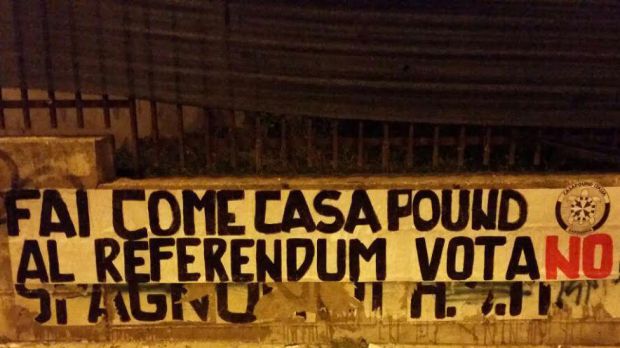 FAI COME CASAPOUND
CASAPOUND ITALIA
AL REFERENDUM VOTA NO